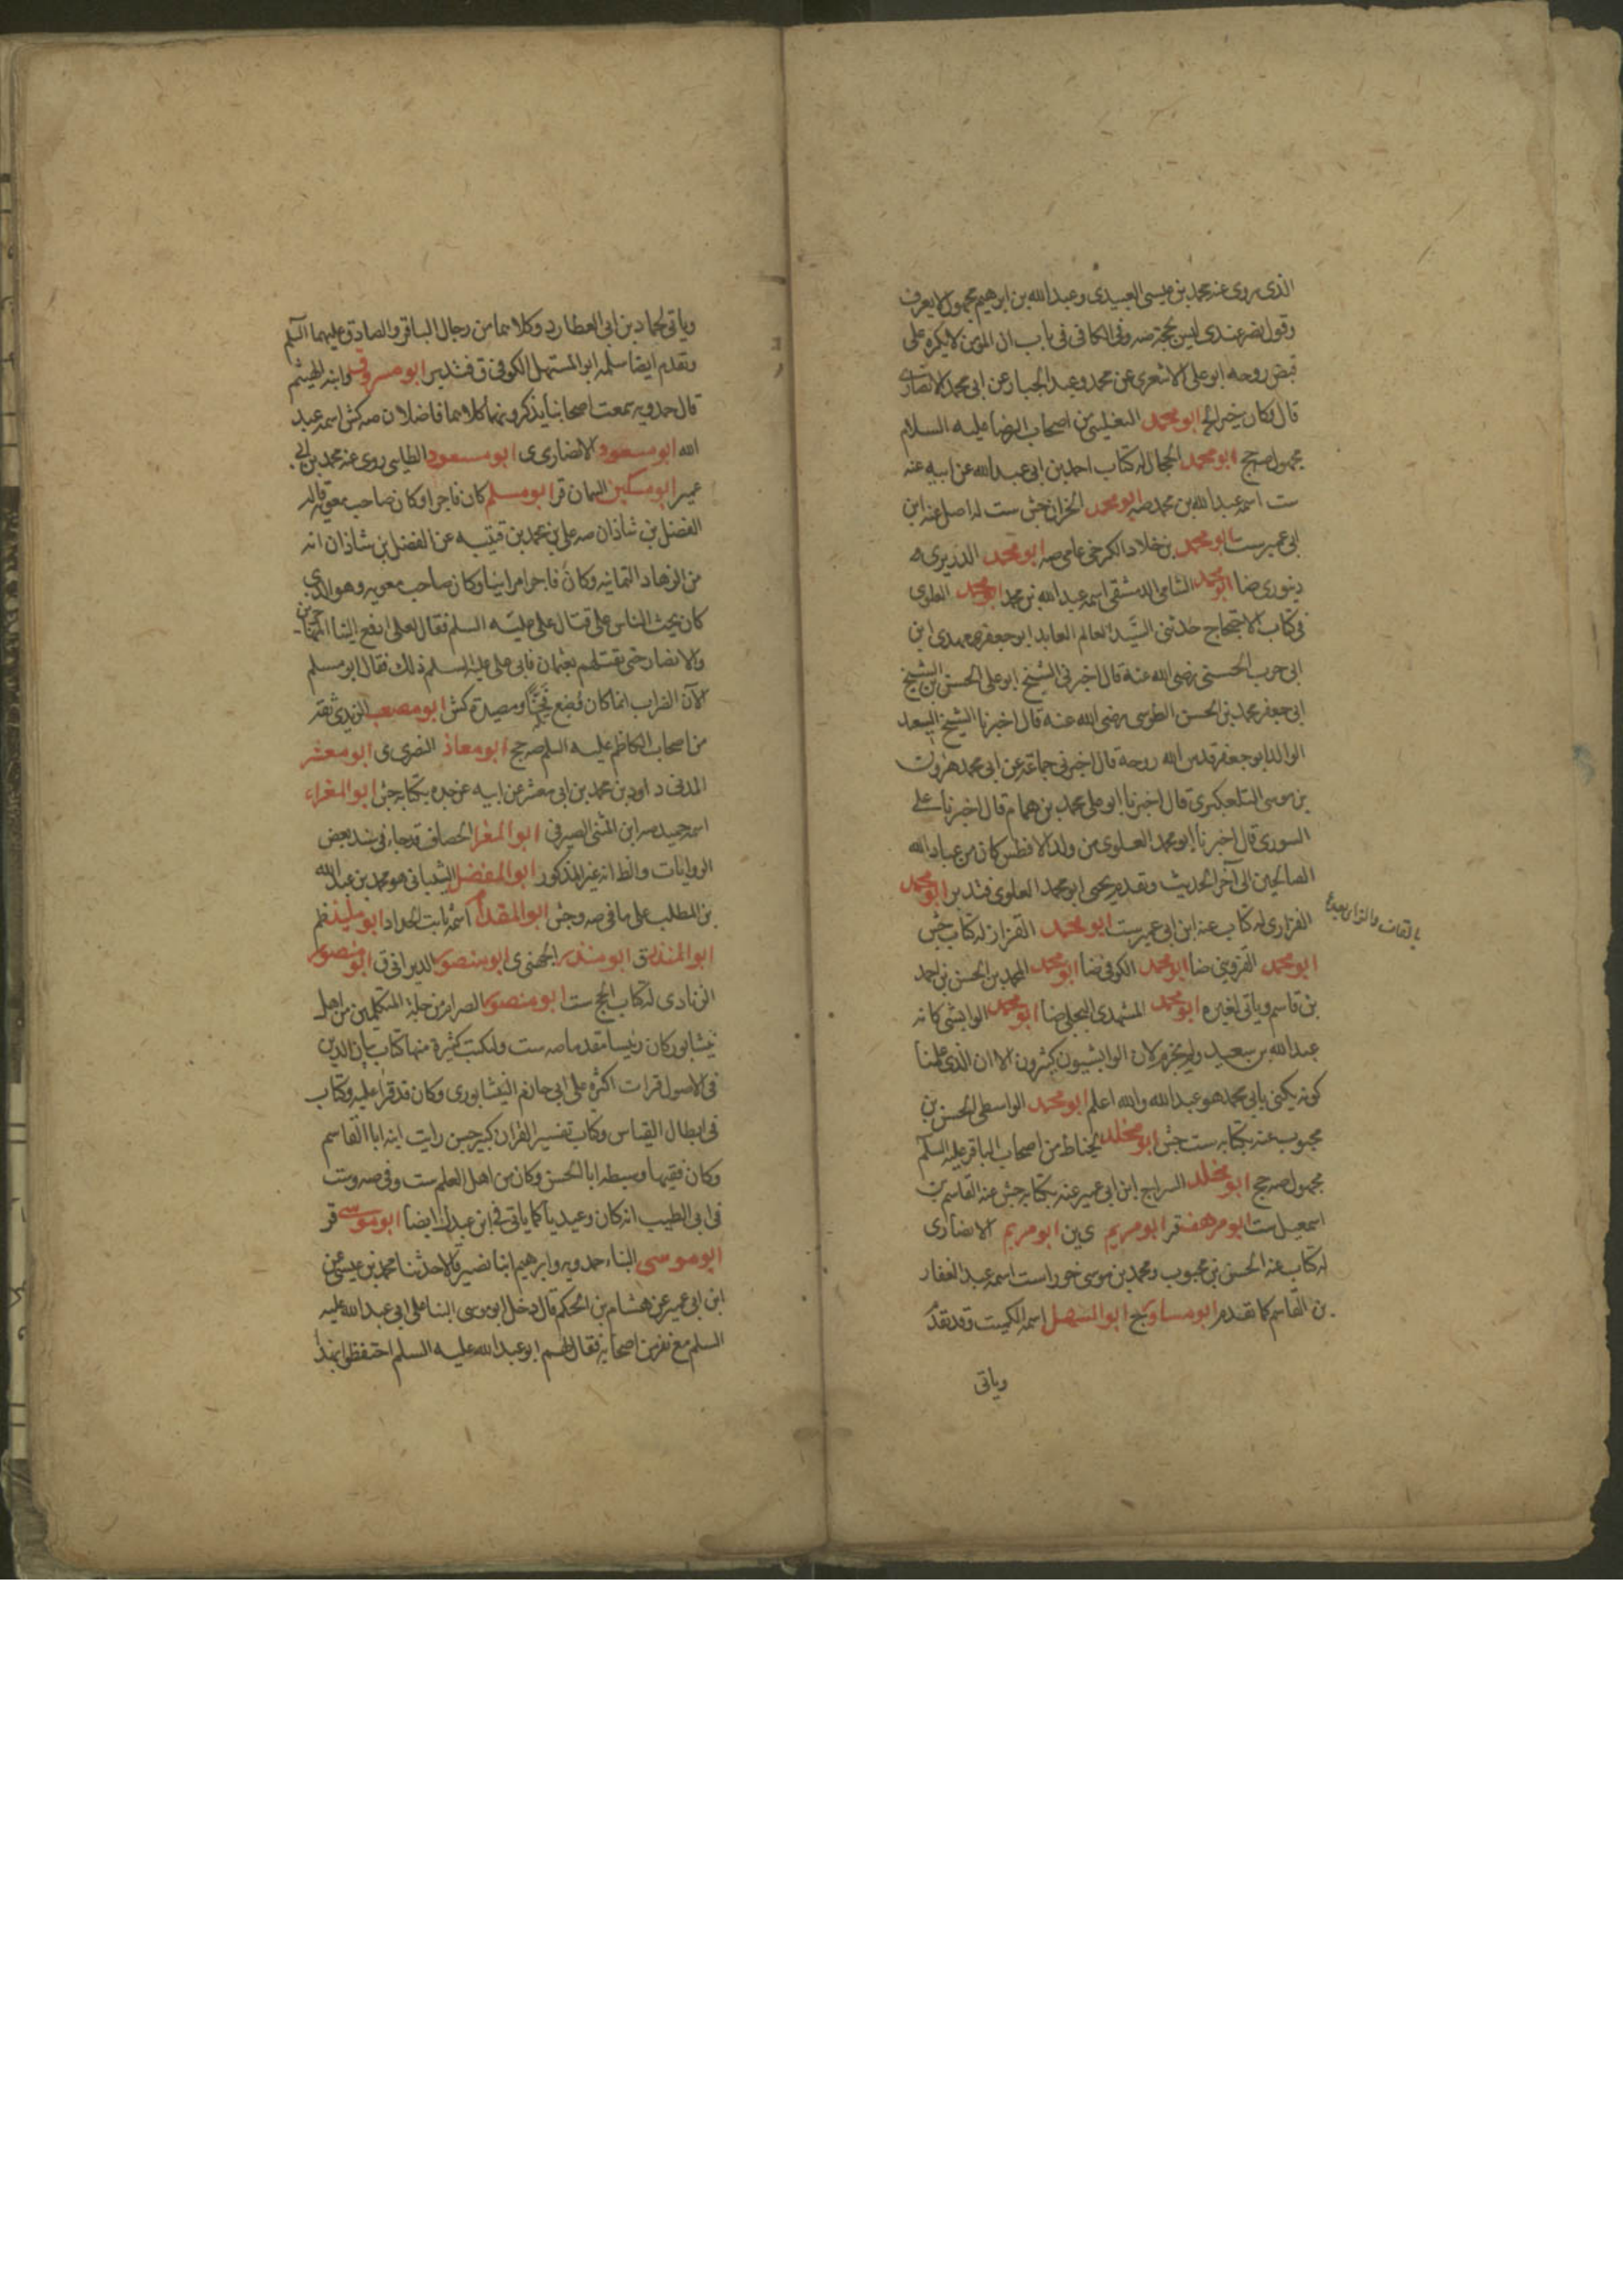 الذى روى عنه محمد بن عيسى العبيدى وعبد الله بن ابرهيم مجهول لا يعرف
وقول نصر عندى ليس بحجة صه وفى الكافى فى باب ان المؤمن لا يكره على
قبض روحه ابو على الاشعرى عن محمد وعبد الجبار عن ابى محمد الانصارى
قال وكان خيرا لخ ابو محمد التفليسى من اصحاب الرضا عليه السلام
مجهول صه جخ ابو محمد الحجال له كتاب احمد بن ابى عبد الله عن ابيه عنه
ست اسمه عبد الله بن محمد صه ابو محمد الخزاز جش ست له اصل عنه ابن
ابى عمير ست ابو محمد بن خلاد الكرخى عامى صه ابو محمد الدزيرى
دينورى ضا ابو محمد الشامى الدمشقى اسمه عبد الله بن محمد ابو محمد العلوى
فى كتاب الاحتجاج حدثنى السيد العالم العابد ابو جعفر مهدى ابن
ابى حرب الحسينى رضى الله عنه قال اخبرنى الشيخ ابو على الحسن بن الشيخ
ابى جعفر محمد بن الحسن الطوسى رضى الله عنه قال اخبرنا الشيخ السعيد
الوالد ابو جعفر قدس الله روحه قال اخبرنى جماعة عن ابى محمد هرون
بن موسى التلعكبرى قال اخبرنا ابو على محمد بن همام قال اخبرنا على
السورى قال اخبرنا ابو محمد العلوى من ولد الافطس كان من عباد الله
الصالحين الى آخر الحديث وتقدم يحيى ابو محمد العلوى فتدبر ابو محمد
بالقاف والزاى بعده
الفزارى له كتاب عنه ابن ابى عمير ست ابو محمد القزاز له كتاب جش
ابو محمد القزوينى ضا ابو محمد الكوفى ضا ابو محمد المحمد بن الحسن بن احمد
بن قاسم وياتى لغيره ابو محمد المشهدى البجلى ضا ابو محمد الوابشى كانه
عبد الله بن سعيد ولم يجزم لان الوابشيون كثيرون الا ان الذى علمنا
كونه يكنى بابى محمد هو عبد الله والله اعلم ابو محمد الواسطى الحسن بن
محبوب عنه بكتابه ست جش ابو مخلد الخياط من اصحاب الباقر عليه السلم
مجهول صه جخ ابو مخلد السراج ابن ابى عمير عنه بكتابه جش عنه القاسم بن
اسمعيل ست ابو مرهف قر ابو مريم ى ين ابو مريم الانصارى
له كتاب عنه الحسن بن محبوب ومحمد بن موسى خوراست اسمه عبد الغفار
بن القاسم كما تقدم ابو مساور جخ ابو المستهل اسمه الكميت وقد تقدم
وياتى
وياتى لحماد بن ابى العطارد وكلاهما من رجال الباقر والصادق عليهما السلم
وتقدم ايضا سلمة ابو المستهل الكوفى ق فتدبر ابو مسروق وابنه الهيثم
قال حمدويه سمعت اصحابنا يذكرونهما كلاهما فاضلان صه كش اسمه عبد
الله ابو مسعود الانصارى ى ابو مسعود الطايى روى عنه محمد بن ابى
عمير ابو مسكين السمان قر ابو مسلم كان فاجرا وكان صاحب معويه قاله
الفضل بن شاذان صه على بن محمد بن قتيبه عن الفضل بن شاذان انه
من الزهاد الثمانيه وكان فاجرا مرائيا وكان صاحب معويه وهو الذى
كان يحث الناس على قتال على عليه السلم فقال لعلى ادفع الينا المهاجرين
والانصار حتى نقتلهم بعثمان فابى على عليه السلم ذلك فقال ابو مسلم
الآن الضراب انما كان وضع فخا ومصيدة كش ابو مصعب الزيدى ثقة
من اصحاب الكاظم عليه السلم صه جخ ابو معاذ النضرى ى ابو معشر
المدنى داود بن محمد بن ابى معشر عن ابيه عن جده بكتابه جش ابو المغراء
اسمه حميد صه ابن المثنى الصيرفى ابو المغرا الخصاف قد جاء فى سند بعض
الروايات والظ انه غير المذكور ابو المفضل الشيبانى هو محمد بن عبد الله
بن المطلب على ما فى صه وجش ابو المقدام اسمه ثابت الحداد
ابو المنذر ق ابو منذر الجهنى ى ابو منصور الديرانى ق ابو منصور
الزنادى له كتاب الحج ست ابو منصور الصرام من جلة المتكلمين من اهل
نيشابور كان رئيسا مقدما صه ست وله كتب كثيرة منها كتاب بيان الدين
فى الاصول قرات اكثره على ابى حازم النيشابورى وكان قد قرا عليه وكتاب
فى ابطال القياس وكتاب تفسير القران كبير حسن رايت ابنه ابا القاسم
وكان فقيها وسبطه ابا الحسن وكان من اهل العلم ست وفى صه وست
فى ابى الطيب انه كان وعيديا كما ياتى فى ابن عبدك ايضا ابو موسى قر
ابو موسى البناء حمدويه وابرهيم ابنا نصير قالا حدثنا محمد بن عيسى عن
ابن ابى عمير عن هشام بن الحكم قال دخل ابو موسى البنا على ابى عبد الله عليه
السلم مع نفر من اصحابه فقال لهم ابو عبد الله عليه السلم احتفظوا بهذا